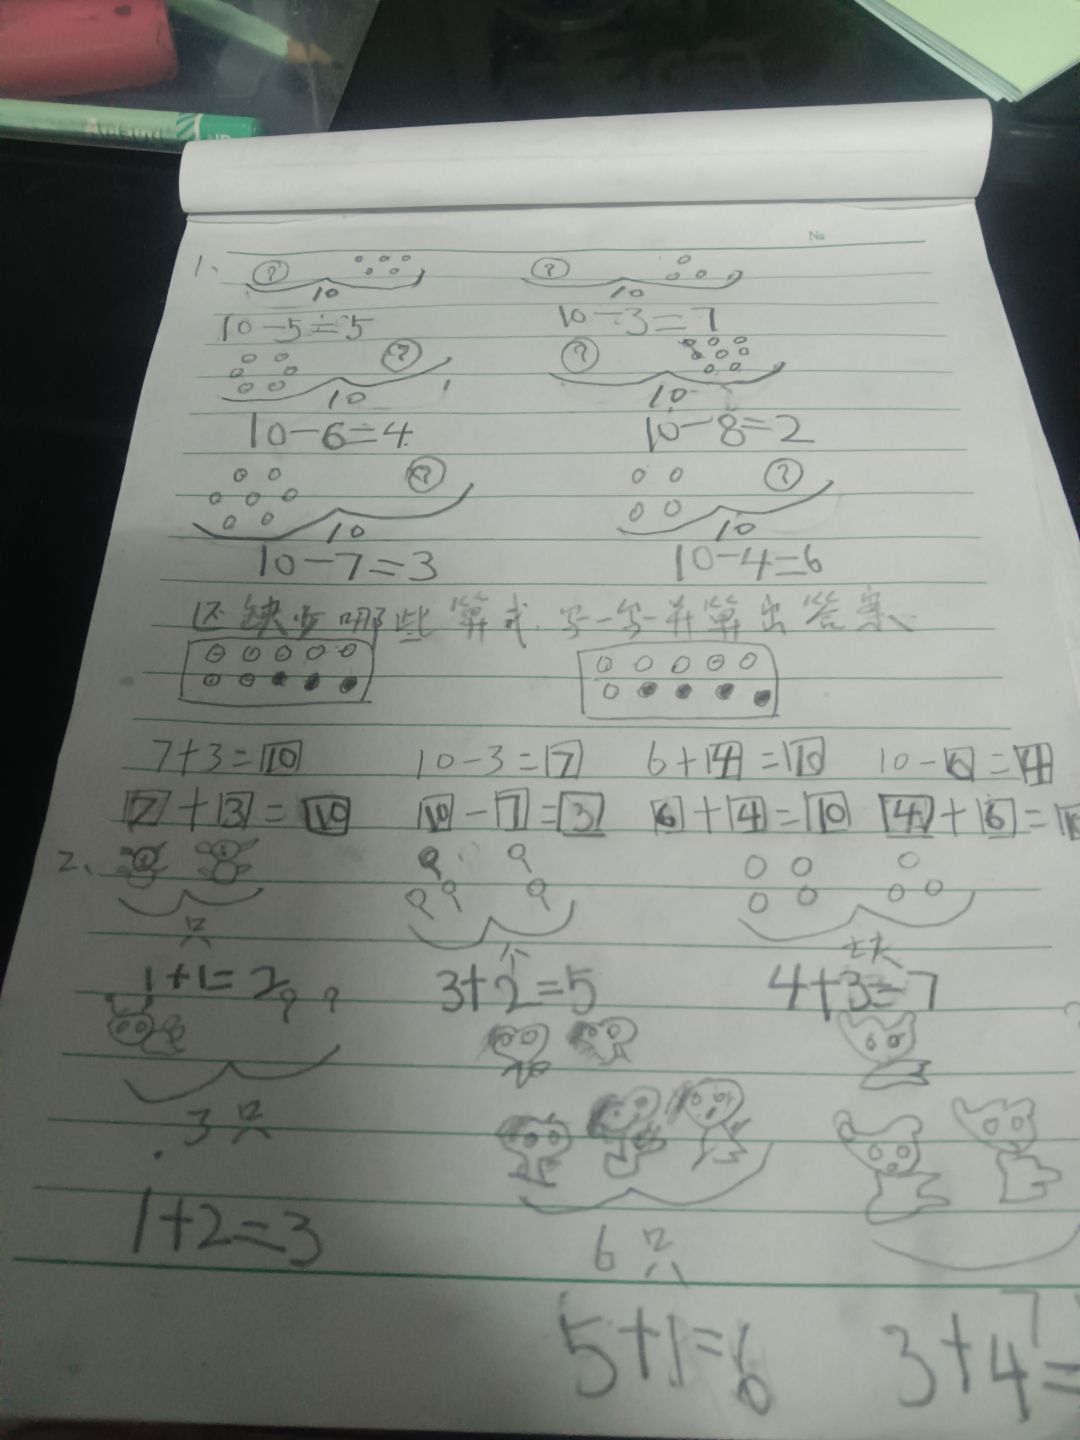 No
1、
? ?
10 10
10-5=5 10-3=7
? ?
10 10
10-6=4 10-8=2
? ?
10 10
10-7=3 10-4=6
还缺少哪些算式.写一写并算出答案
7+3=10 10-3=7 6+4=10 10-6=4
7+3=10 10-7=3 6+4=10 4+6=1
2、
只 个
1+1=2 3+2=5 4+3=7
? ?
3只
1+2=3 6只
5+1=6 7
3+4=